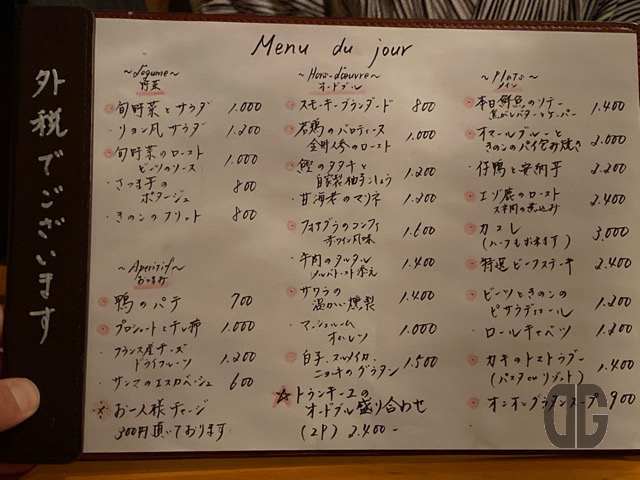 外税でございます
Menu du jour
～Legume～
野菜
旬野菜とサラダ 1.000
・リヨン風サラダ 1.200
旬野菜のロースト
ビーツのソース 1.000
・さつま芋の
ポタージュ 800
・きのこのフリット 800
～Aperitif～
おつまみ
鴨のパテ 700
プロシュートと干し柿 1.000
・フランス産チーズ
ドライフルーツ 1.200
・サンマのエスカベーシュ 600
お一人様チャージ
300円頂いております
～Hors-d'œuvre～
オードブル
スモーキーブランダード 800
若鶏のバロティーヌ
金時人参のロースト 1.000
鰹のタタキと
自家製柚子こしょう 1.200
・甘海老のマリネ 1.200
フォアグラのコンフィ
赤ワイン風味 1.600
・牛肉のタルタル
メルバトースト添え 1.400
サワラの
温かい燻製 1.400
・マッシュルーム
オムレツ 1.000
白子、スルメイカ、
ニョッキのグラタン 1.500
☆トランキーユの
オードブル盛り合わせ
(2P) 2.400-
～Plats～
メイン
本日鮮魚のソテー
焦がしバターとケーパー 1.400
オマールブルーと
きのこのパイ包み焼き 2.000
・仔鴨と安納芋 2.200
エゾ鹿のロースト
スネ肉の煮込み 2.400
カスレ
(ハーフも出来ます) 3.000
特選ビーフステーキ 2.400
ビーツときのこの
ピサラディエール 1.200
・ロールキャベツ 1.200
カキのトマトラグー
(パスタ or リゾット) 1.400
オニオングラタンスープ 900
DG